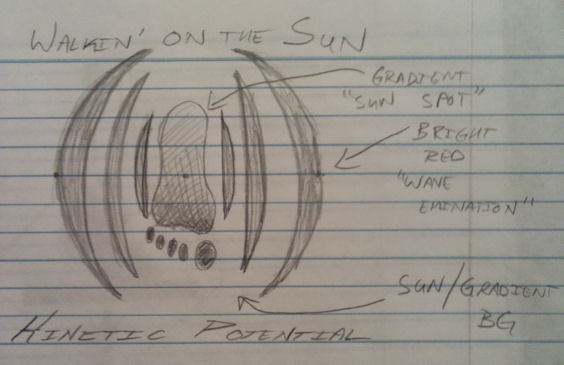 WALKIN' ON THE SUN
GRADIENT
"SUN SPOT"
BRIGHT
RED
"WAVE
EMINATION"
SUN/GRADIENT
BG
KINETIC POTENTIAL